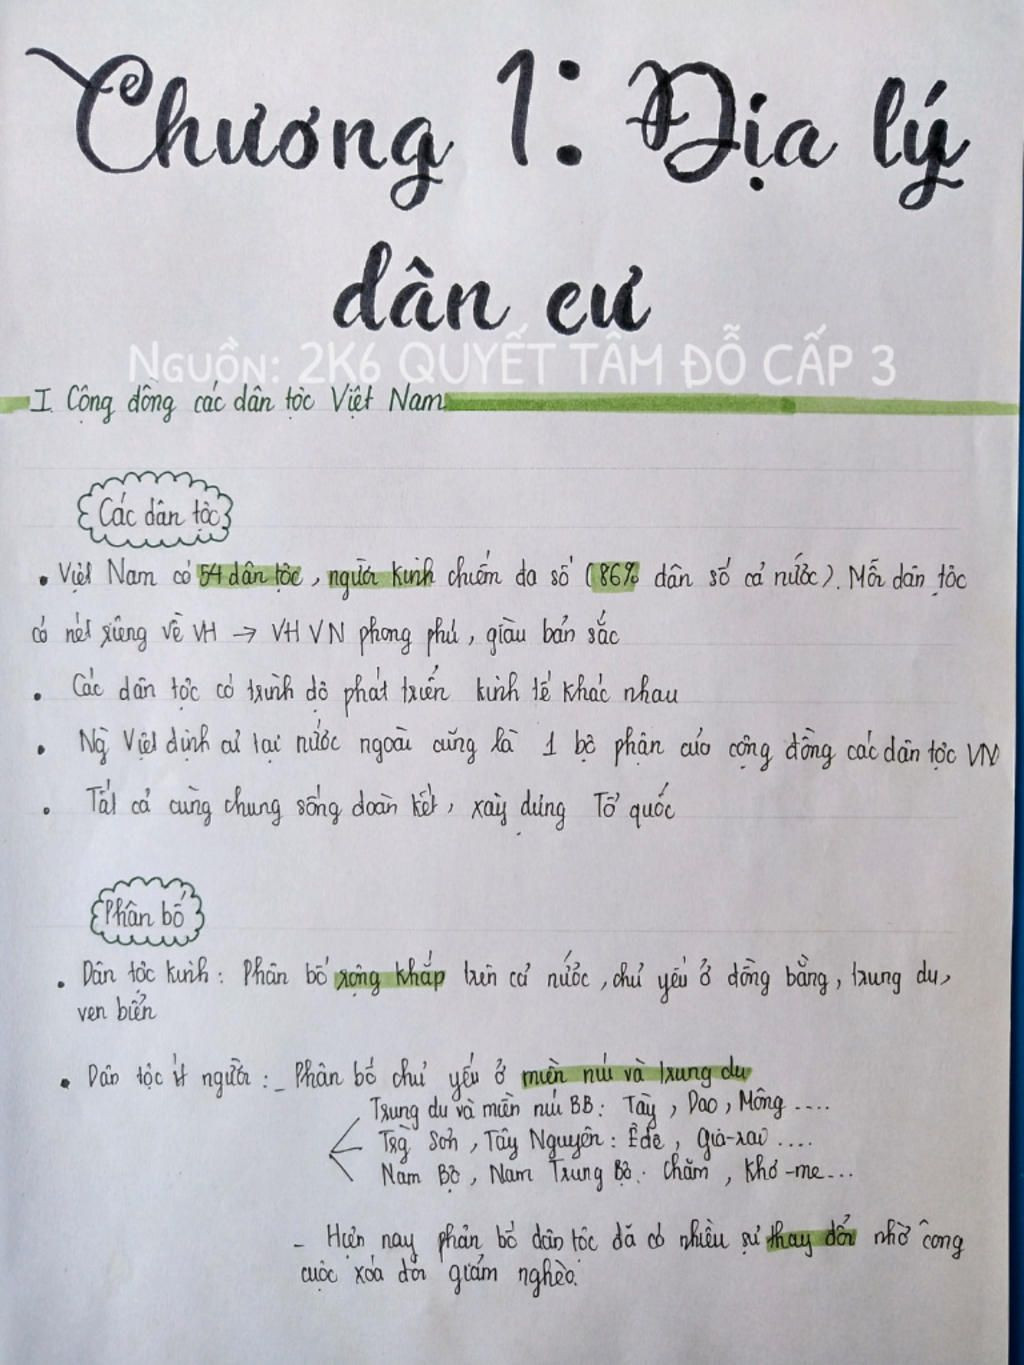 Chương 1: Địa lý
dân cư
NGUỒN: 2K6 QUYẾT TÂM ĐỖ CẤP 3
I. Cộng đồng các dân tộc Việt Nam
Các dân tộc
• Việt Nam có 54 dân tộc, người kinh chiếm đa số (86% dân số cả nước). Mỗi dân tộc
có nét riêng về VH → VH VN phong phú, giàu bản sắc
• Các dân tộc có trình độ phát triển kinh tế khác nhau
• Ng̀ Việt định cư tại nước ngoài cũng là 1 bộ phận của cộng đồng các dân tộc VN
• Tất cả cùng chung sống đoàn kết, xây dựng Tổ quốc
Phân bố
• Dân tộc kinh: Phân bố rộng khắp trên cả nước, chủ yếu ở đồng bằng, trung du,
ven biển
• Dân tộc ít người: - Phân bố chủ yếu ở miền núi và trung du
Trung du và miền núi BB: Tày, Dao, Mông ....
Trg̀ Sơn, Tây Nguyên: Ê đê, Gia-rai ....
Nam Bộ, Nam Trung Bộ: Chăm, Khơ-me...
- Hiện nay phân bố dân tộc đã có nhiều sự thay đổi nhờ công
cuộc xóa đói giảm nghèo.